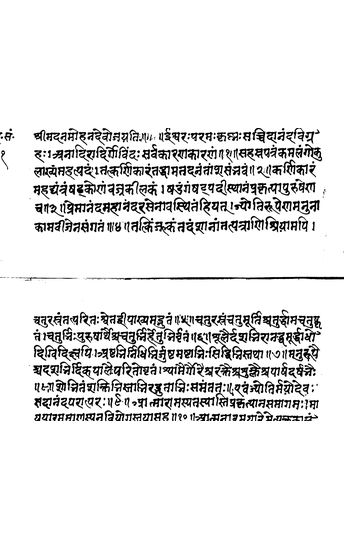 ः सं॰ श्रीमदनमोहनदेवोजयति॥ ॥ईश्वरः परमः कृष्णः सच्चिदानंदविग्र
१ हः॥अनादिरादिर्गोविंदः सर्वकारणकारणं॥१॥सहस्रपत्रंकमलंगोकु
लाख्यंमहत्पदं॥तत्कर्णिकारंतद्धामतदनंतांशसंभवं॥२॥कर्णिकारं
महद्यंत्रंषट्कोणंवज्रकीलकं॥षडंगंषट्पदीस्थानंप्रकृत्यापुरुषेण
च॥३॥प्रेमानंदमहानंदरसेनावस्थितंहियत्॥ज्योतिरूपेणमनुना
कामबीजेनसंगतं॥४॥तत्किंजल्कंतदंशानांतत्पत्राणिश्रियामपि।
चतुरस्रंतत्परितःश्वेतद्वीपाख्यमद्भुतं॥५॥चतुरस्रंचतुर्मूर्तिश्चतुर्द्धामचतुष्कृ
तं॥चतुर्भिःपुरुषार्थैश्चचतुर्भिर्हेतुभिर्वृतं॥६॥शूलैर्दशभिरानद्धमूर्द्धाधो
दिग्विदिक्ष्वपि॥अष्टभिर्निधिभिर्जुष्टमष्टभिःसिद्धिभिस्तथा॥७॥मनुरूपै
श्चदशभिर्दिक्पालैःपरितोवृतं॥श्यामैर्गौरैश्चरक्तैश्चशुक्लैश्चपार्षदर्षभैः
॥८॥शोभितंशक्तिभिस्ताभिरद्भुताभिःसमंततः॥एवंज्योतिर्मयोदेवः
सदानंदपरात्परः॥९॥आत्मारामस्यतस्यास्तिप्रकृत्यानसमागमः॥मा
ययारममाणस्यनवियोगस्तयासह॥१०॥